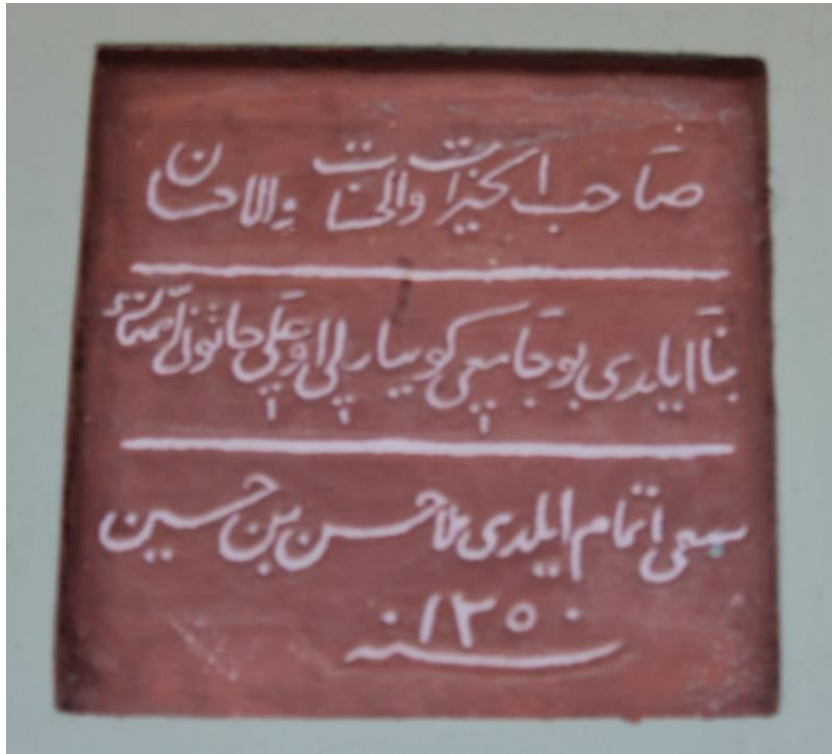 صاحب الخيرات والحسنات والاحسان
بنا ايلدى بو جامعى كوييارلى اوغلى حاتول
سعى اتمام ايلدى ملا حسن بن حسين
سنه ١٢٥٠